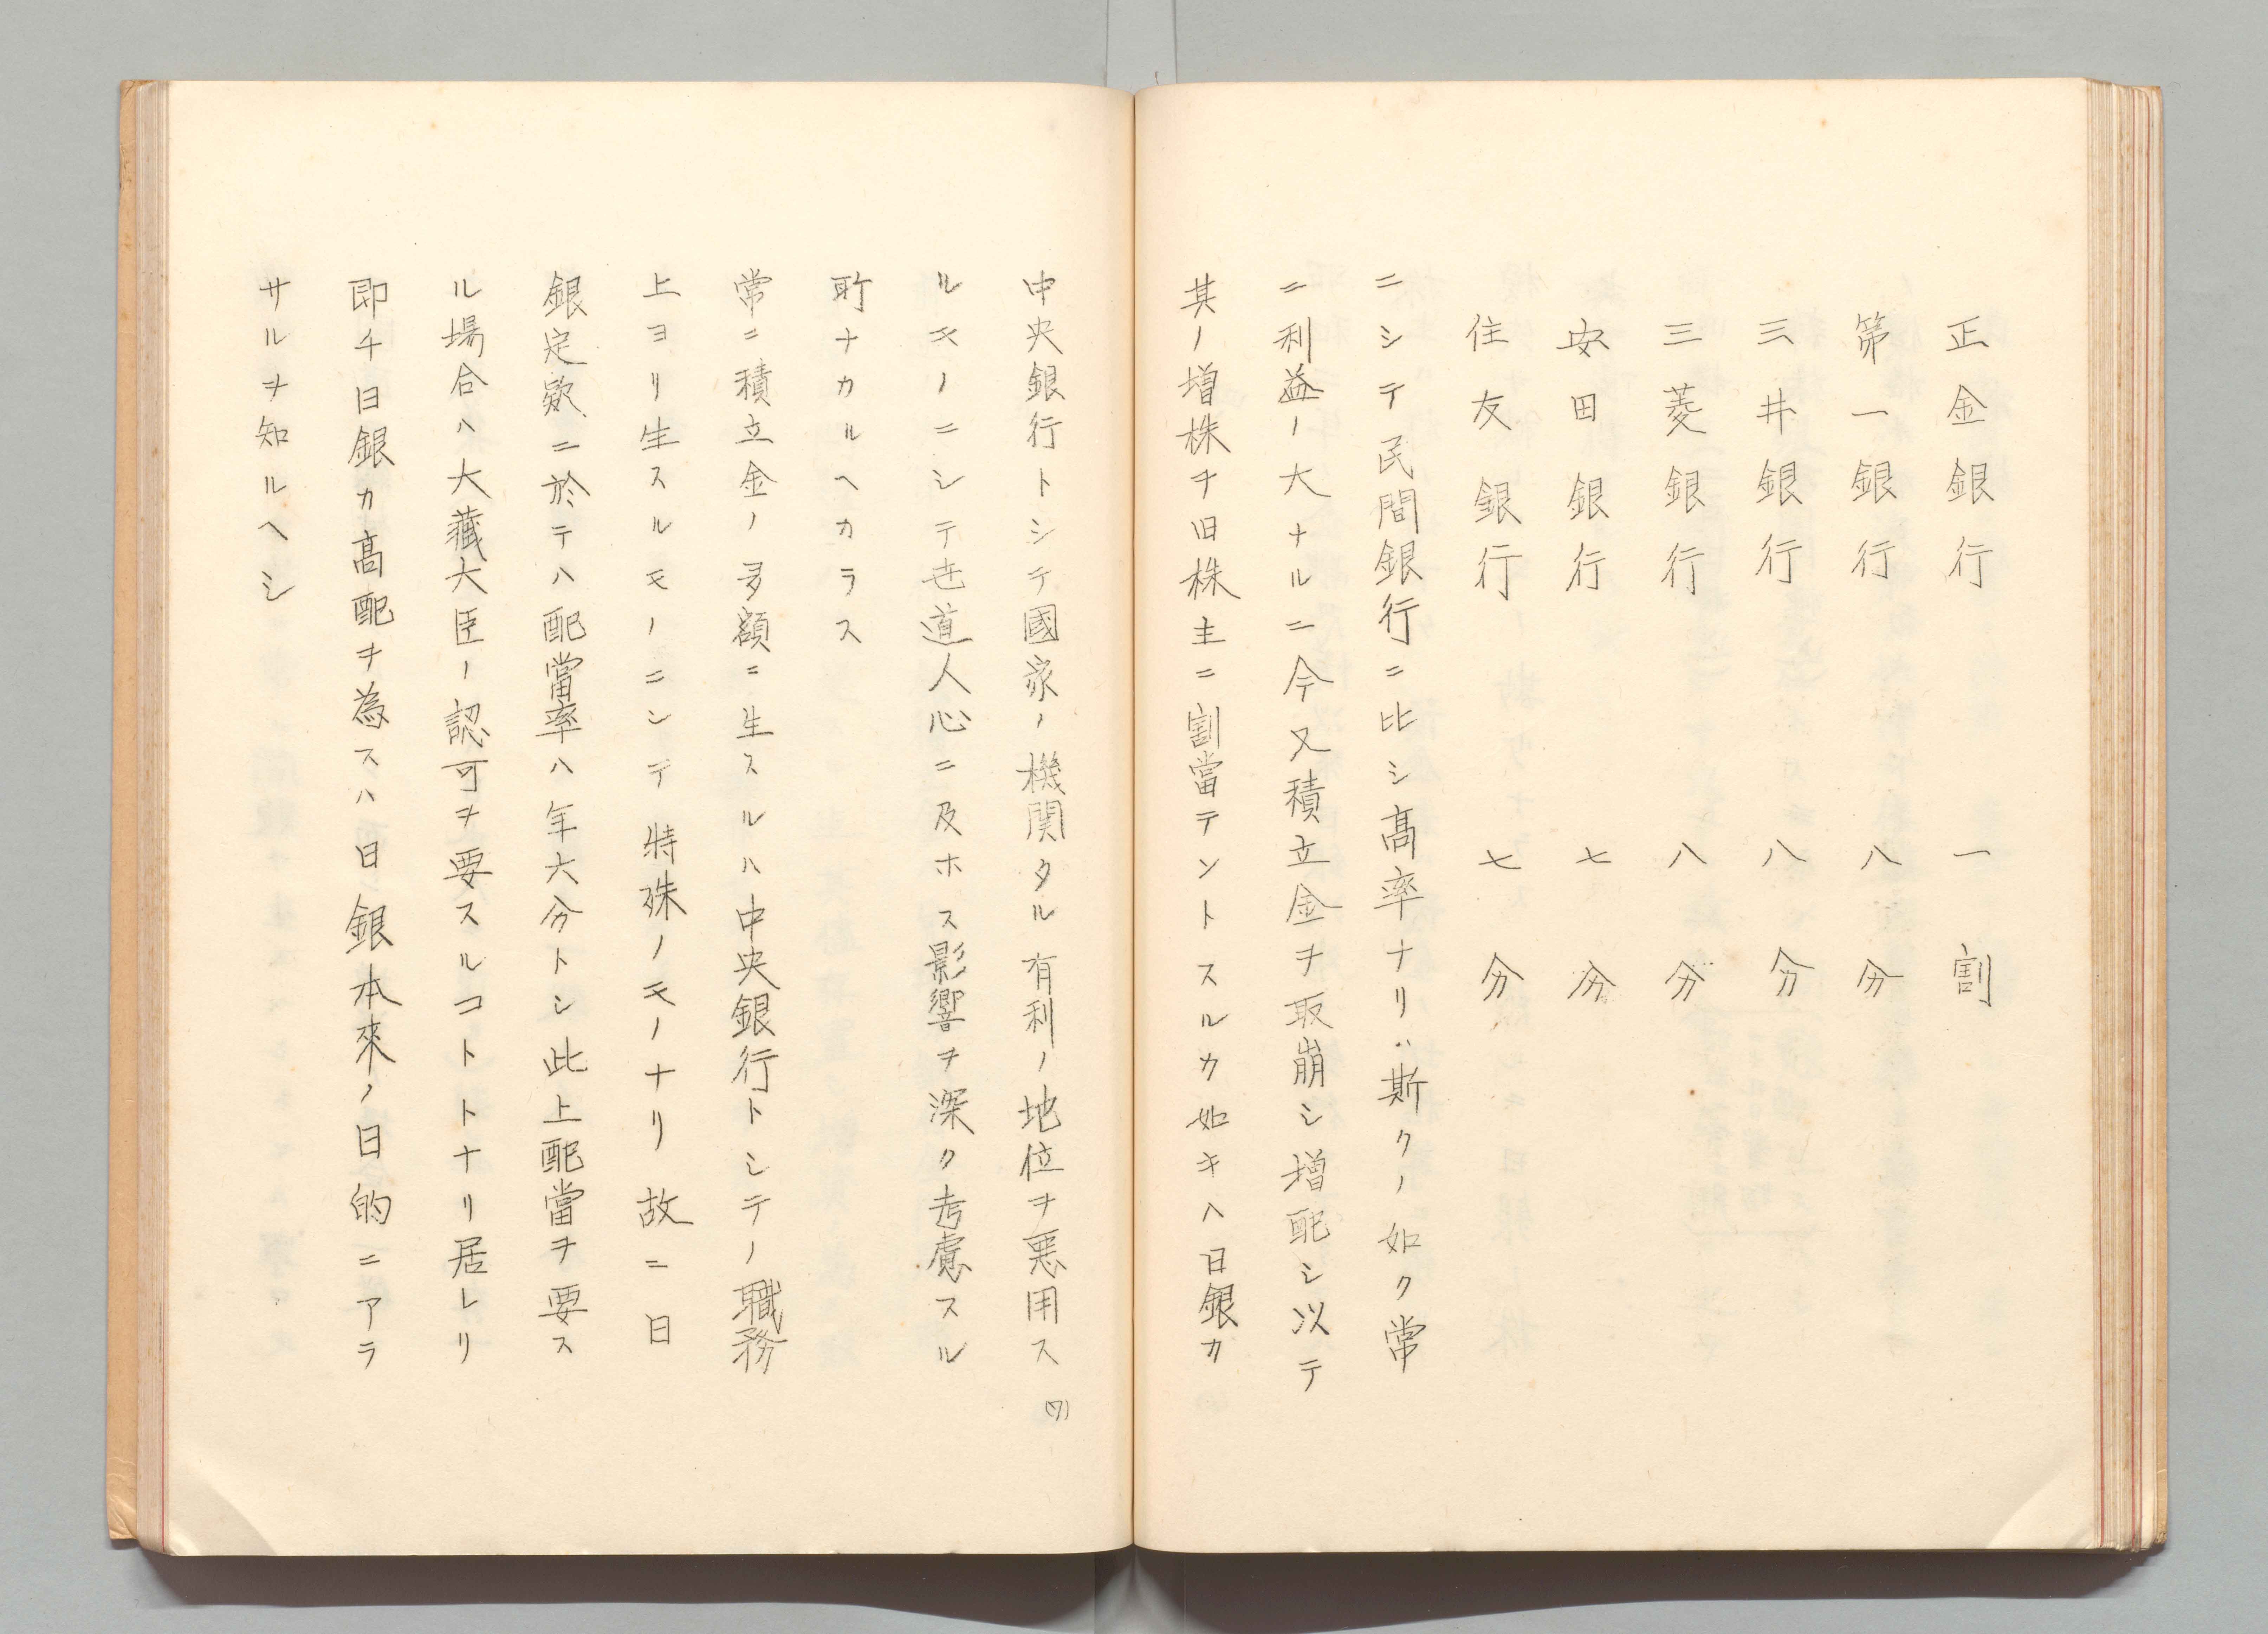 正金銀行 一割
第一銀行 八分
三井銀行 八分
三菱銀行 八分
安田銀行 七分
住友銀行 七分
ニシテ民間銀行ニ比シ高率ナリ斯クノ如ク常
ニ利益ノ大ナルニ今又積立金ヲ取崩シ増配シ以テ
其ノ増株ヲ旧株主ニ割當テントスルカ如キハ日銀カ
中央銀行トシテ國家ノ機関タル有利ノ地位ヲ悪用ス
(7)
ルモノニシテ世道人心ニ及ホス影響ヲ深ク考慮スル
所ナカルヘカラス
常ニ積立金ノ多額ニ生スルハ中央銀行トシテノ職務
上ヨリ生スルモノニシテ特殊ノモノナリ故ニ日
銀定款ニ於テハ配當率八年六分トシ此上配當ヲ要ス
ル場合ハ大藏大臣ノ認可ヲ要スルコトトナリ居レリ
即チ日銀カ高配ヲ為スハ日銀本來ノ目的ニアラ
サルヲ知ルヘシ